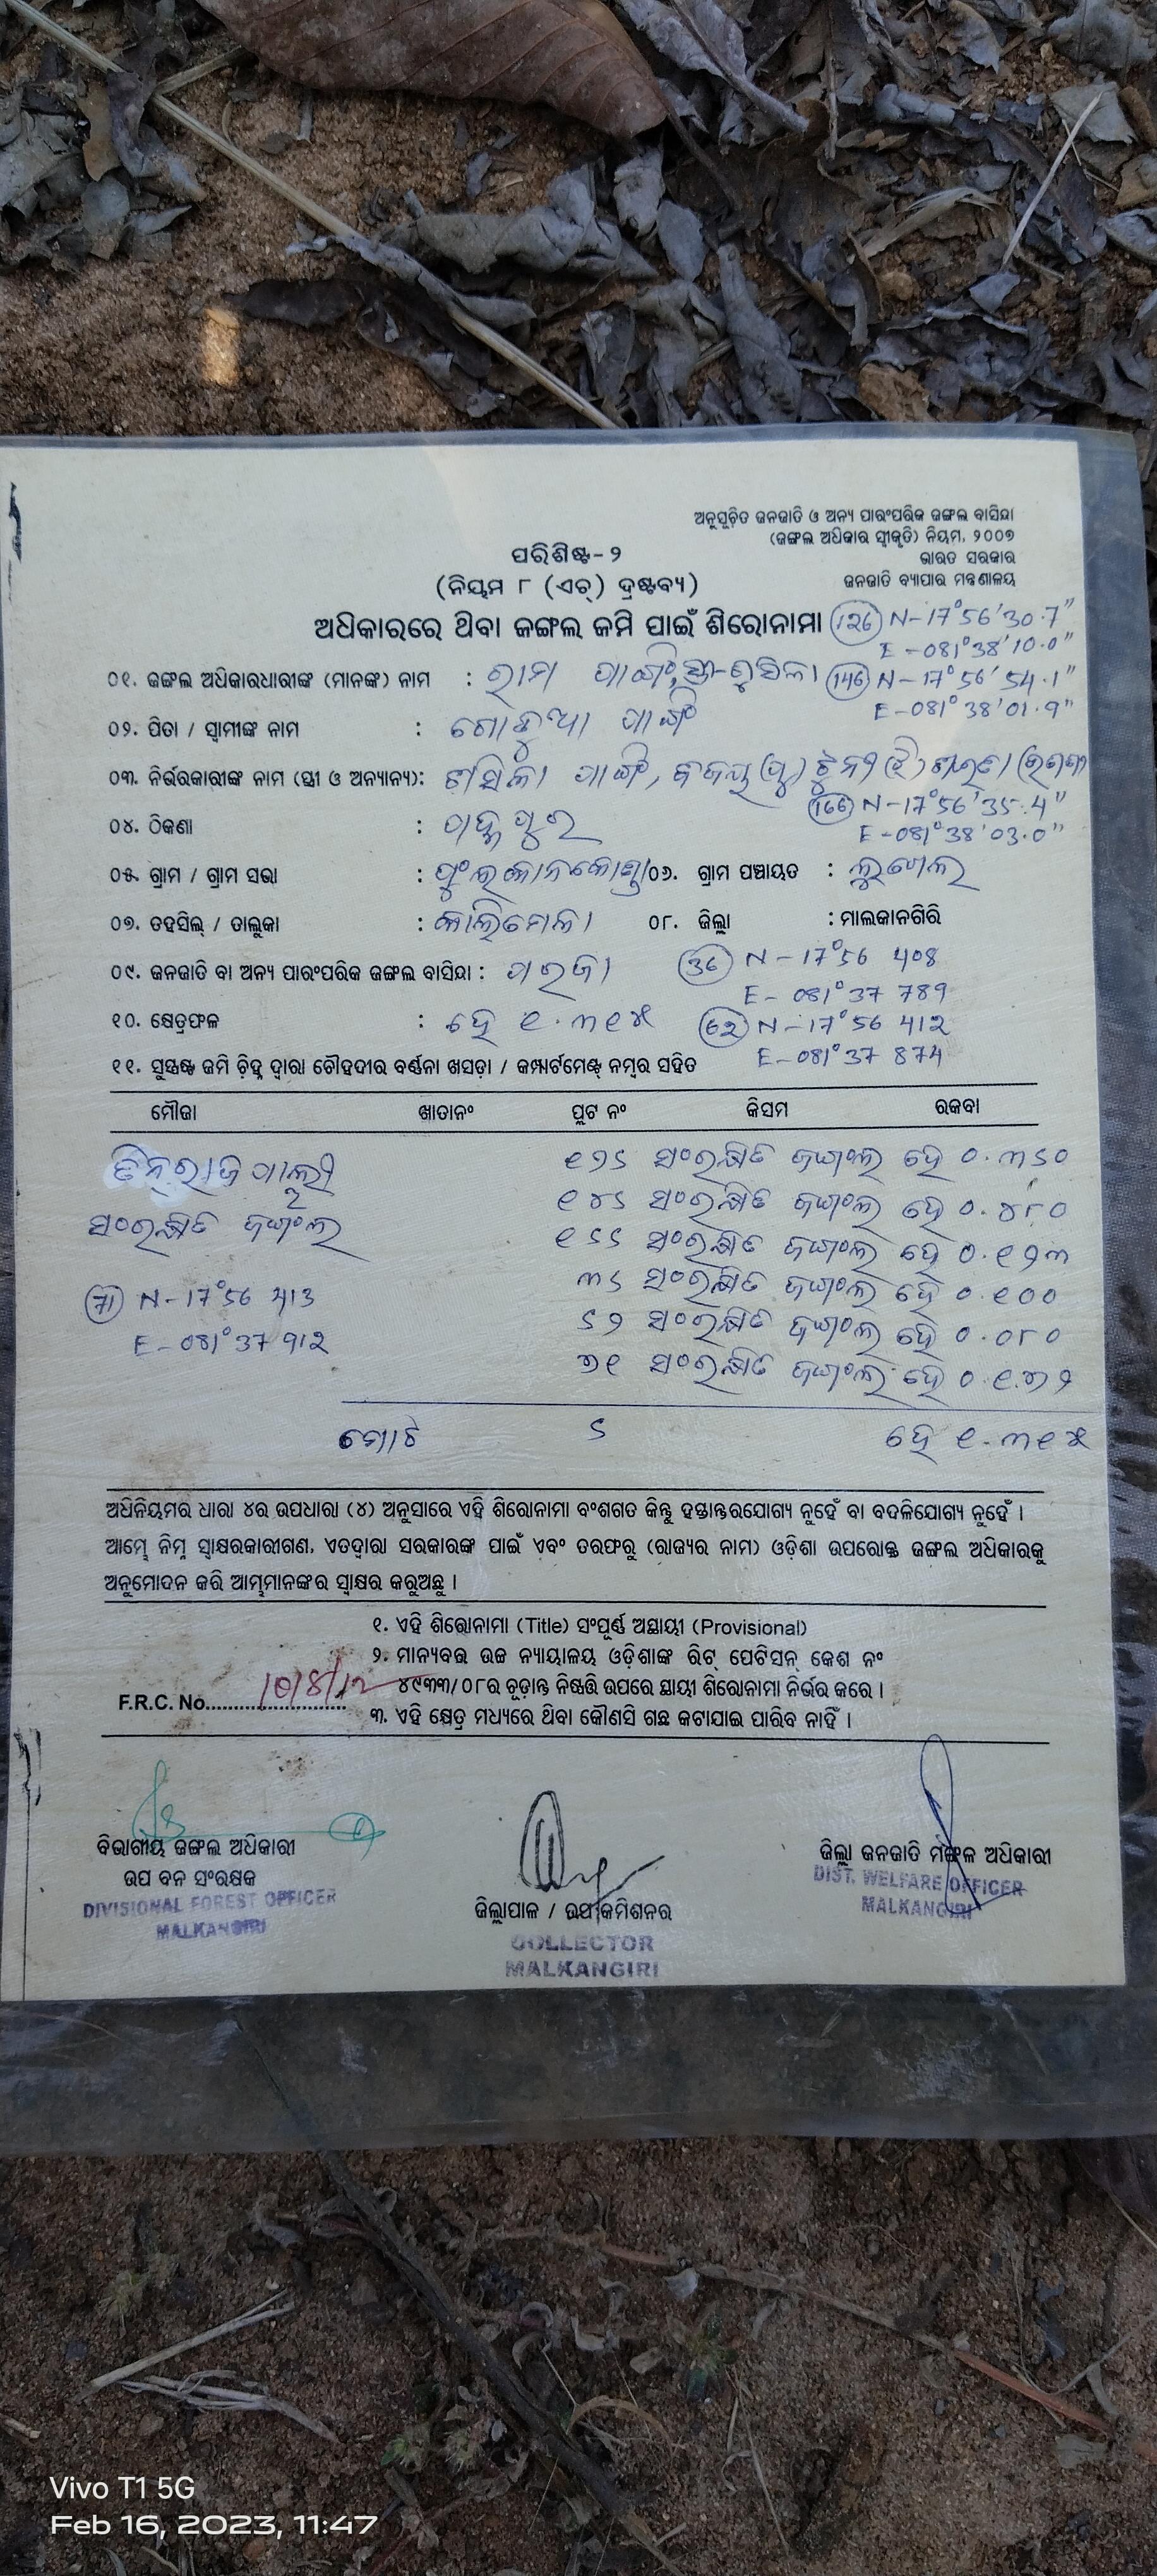 ଅନୁସୂଚିତ ଜନଜାତି ଓ ଅନ୍ୟ ପାରଂପରିକ ଜଙ୍ଗଲ ବାସିନ୍ଦା
(ଜଙ୍ଗଲ ଅଧିକାର ସ୍ୱୀକୃତି) ନିୟମ, ୨୦୦୭
ଭାରତ ସରକାର
ଜନଜାତି ବ୍ୟାପାର ମନ୍ତ୍ରଣାଳୟ
ପରିଶିଷ୍ଟ-୨
(ନିୟମ ୮ (ଏଚ୍) ଦ୍ରଷ୍ଟବ୍ୟ)
ଅଧିକାରରେ ଥିବା ଜଙ୍ଗଲ ଜମି ପାଇଁ ଶିରୋନାମା
126 N-17°56'30.7"
E-081°38'10.0"
୦୧. ଜଙ୍ଗଲ ଅଧିକାରଧାରୀଙ୍କ (ମାନଙ୍କ) ନାମ : ରାମ ପାଙ୍ଗି
146 N-17°56'54.1"
E-081°38'01.9"
୦୨. ପିତା / ସ୍ୱାମୀଙ୍କ ନାମ : ପାଙ୍ଗି
୦୩. ନିର୍ଭରକାରୀଙ୍କ ନାମ (ସ୍ତ୍ରୀ ଓ ଅନ୍ୟାନ୍ୟ): ପାଙ୍ଗି,
166 N-17°56'35.4"
E-081°38'03.0"
୦୪. ଠିକଣା :
୦୫. ଗ୍ରାମ / ଗ୍ରାମ ସଭା : ୦୬. ଗ୍ରାମ ପଞ୍ଚାୟତ :
୦୭. ତହସିଲ୍ / ତାଲୁକା : କାଲିମେଳା ୦୮. ଜିଲ୍ଲା : ମାଲକାନଗିରି
୦୯. ଜନଜାତି ବା ଅନ୍ୟ ପାରଂପରିକ ଜଙ୍ଗଲ ବାସିନ୍ଦା : ପରଜା
36 N-17°56 408
E-081°37 789
୧୦. କ୍ଷେତ୍ରଫଳ : ହେ ୧.୩୧୫
62 N-17°56 412
E-081°37 874
୧୧. ସୁସ୍ପଷ୍ଟ ଜମି ଚିହ୍ନ ଦ୍ୱାରା ଚୌହଦୀର ବର୍ଣ୍ଣନା ଖସଡ଼ା / କମ୍ପାର୍ଟମେଣ୍ଟ୍ ନମ୍ବର ସହିତ
ମୌଜା ଖାତାନଂ ପ୍ଲଟ ନଂ କିସମ ରକବା
୧୨୬ ସଂରକ୍ଷିତ ଜଙ୍ଗଲ ହେ ୦.୩୬୦
୧୪୬ ସଂରକ୍ଷିତ ଜଙ୍ଗଲ ହେ ୦.୪୮୦
ସଂରକ୍ଷିତ ଜଙ୍ଗଲ
୧୬୬ ସଂରକ୍ଷିତ ଜଙ୍ଗଲ ହେ ୦.୧୨୩
୩୬ ସଂରକ୍ଷିତ ଜଙ୍ଗଲ ହେ ୦.୧୦୦
71 N-17°56 413
୬୨ ସଂରକ୍ଷିତ ଜଙ୍ଗଲ ହେ ୦.୦୮୦
E-081°37 912
୭୧ ସଂରକ୍ଷିତ ଜଙ୍ଗଲ ହେ ୦.୧୭୨
ମୋଟ ୬ ହେ ୧.୩୧୫
ଅଧିନିୟମର ଧାରା ୪ର ଉପଧାରା (୪) ଅନୁସାରେ ଏହି ଶିରୋନାମା ବଂଶଗତ କିନ୍ତୁ ହସ୍ତାନ୍ତରଯୋଗ୍ୟ ନୁହେଁ ବା ବଦଳିଯୋଗ୍ୟ ନୁହେଁ ।
ଆମ୍ଭେ ନିମ୍ନ ସ୍ୱାକ୍ଷରକାରୀଗଣ, ଏତଦ୍ୱାରା ସରକାରଙ୍କ ପାଇଁ ଏବଂ ତରଫରୁ (ରାଜ୍ୟର ନାମ) ଓଡ଼ିଶା ଉପରୋକ୍ତ ଜଙ୍ଗଲ ଅଧିକାରକୁ
ଅନୁମୋଦନ କରି ଆମ୍ଭମାନଙ୍କର ସ୍ୱାକ୍ଷର କରୁଅଛୁ ।
୧. ଏହି ଶିରୋନାମା (Title) ସଂପୂର୍ଣ୍ଣ ଅସ୍ଥାୟୀ (Provisional)
୨. ମାନ୍ୟବର ଉଚ୍ଚ ନ୍ୟାୟାଳୟ ଓଡ଼ିଶାଙ୍କ ରିଟ୍ ପେଟିସନ୍ କେଶ ନଂ
୪୯୩୩/୦୮ର ଚୂଡ଼ାନ୍ତ ନିଷ୍ପତ୍ତି ଉପରେ ସ୍ଥାୟୀ ଶିରୋନାମା ନିର୍ଭର କରେ ।
F.R.C. No.
୩. ଏହି କ୍ଷେତ୍ର ମଧ୍ୟରେ ଥିବା କୌଣସି ଗଛ କଟାଯାଇ ପାରିବ ନାହିଁ ।
ବିଭାଗୀୟ ଜଙ୍ଗଲ ଅଧିକାରୀ
ଉପ ବନ ସଂରକ୍ଷକ
DIVISIONAL FOREST OFFICER
MALKANGIRI
ଜିଲ୍ଲାପାଳ / ଉପକମିଶନର
COLLECTOR
MALKANGIRI
ଜିଲ୍ଲା ଜନଜାତି ମଙ୍ଗଳ ଅଧିକାରୀ
DIST. WELFARE OFFICER
MALKANGIRI
Vivo T1 5G
Feb 16, 2023, 11:47